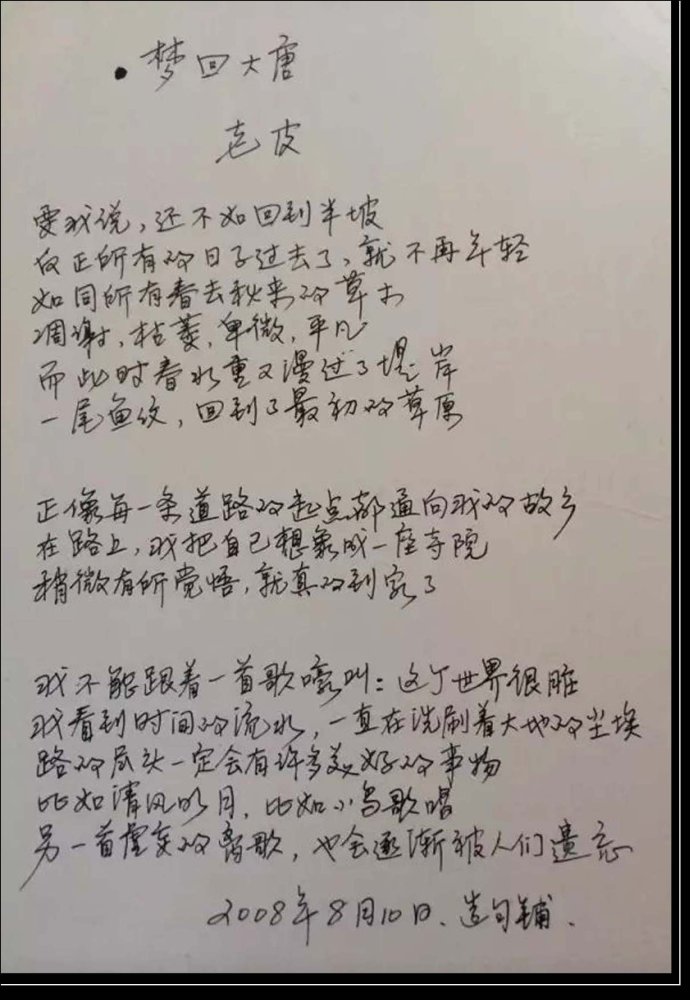 •梦回大唐
老皮
要我说，还不如回到半坡
反正所有的日子过去了，就不再年轻
如同所有春去秋来的草木
凋谢，枯萎，卑微，平凡
而此时春水重又漫过了堤岸
一尾鱼纹，回到了最初的草原
正像每一条道路的起点都通向我的故乡
在路上，我把自己想象成一座寺院
稍微有所觉悟，就真的到家了
我不能跟着一首歌嚎叫：这个世界很脏
我看到时间的流水，一直在洗刷着大地的尘埃
路的尽头一定会有许多美好的事物
比如清风明月，比如小鸟歌唱
另一首虚妄的离歌，也会逐渐被人们遗忘
2008年8月10日、造句铺.